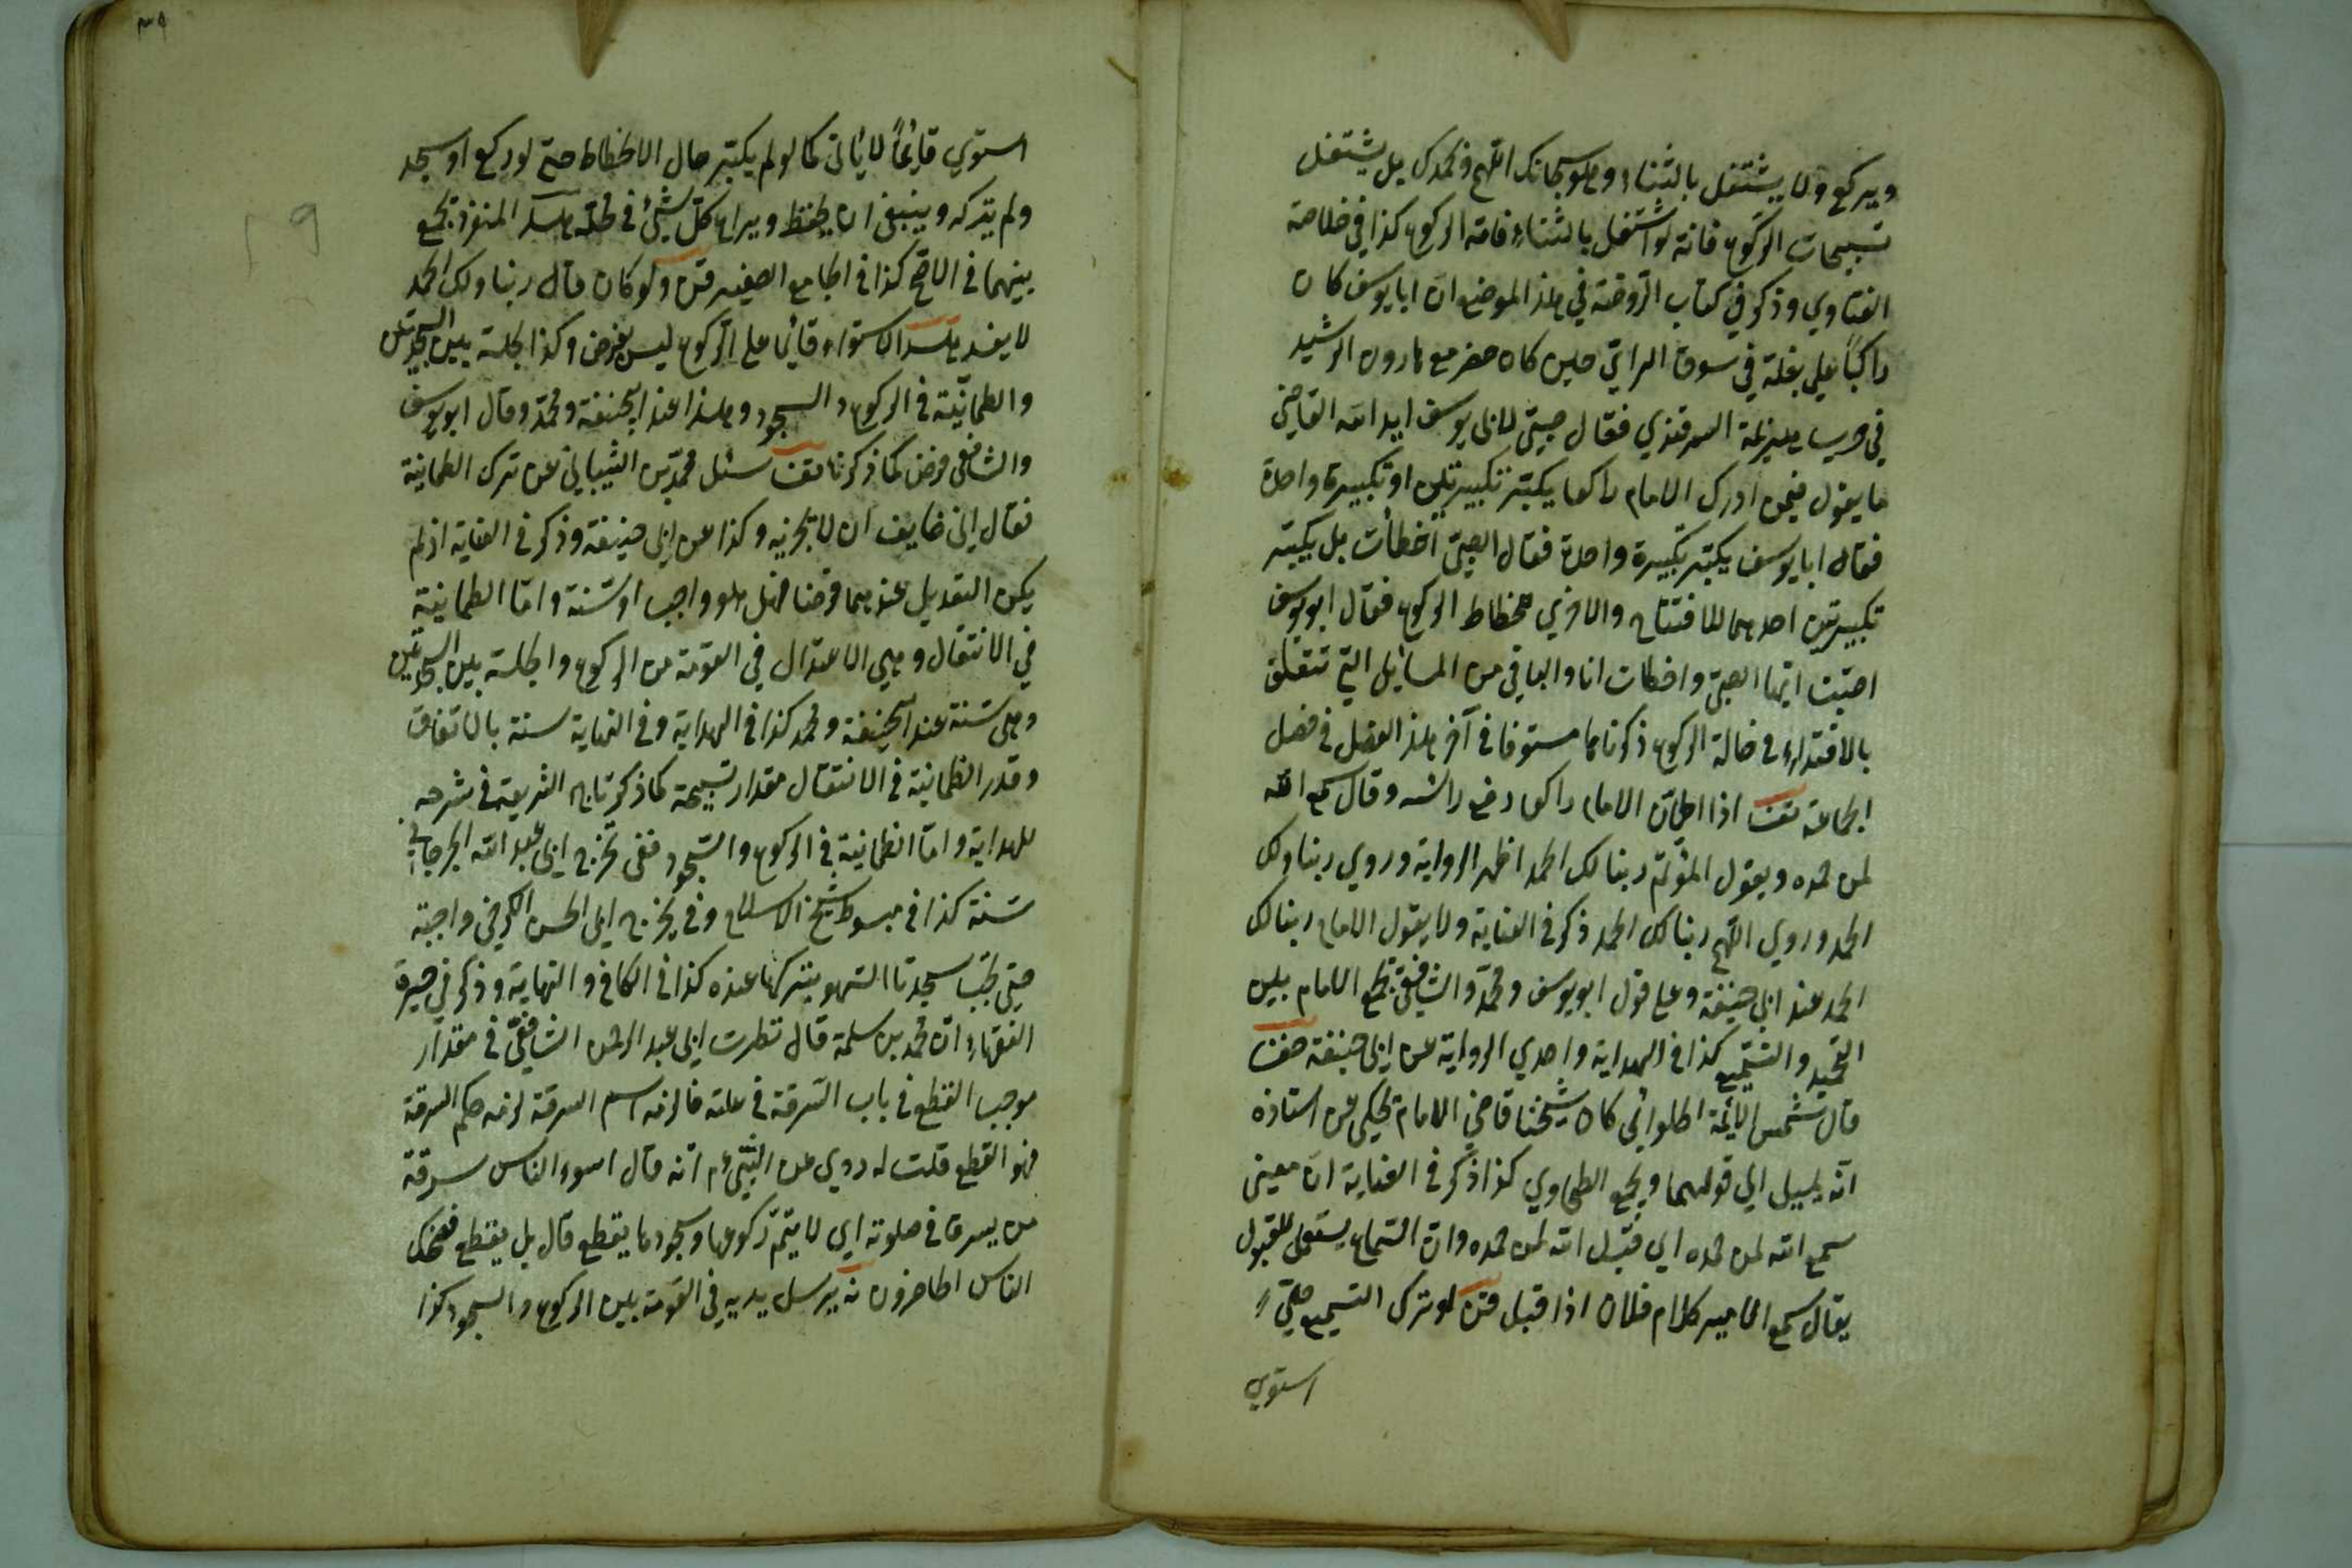 ويركع ولا يشتغل بالثناء وهو سبحانك اللهم وبحمدك بل يشتغل
تسبيحات الركوع فانه لو اشتغل بالثناء فاته الركوع كذا في خلاصة
الفتاوي وذكر في كتاب الروضة في هذا الموضع ان ابا يوسف كان
راكبا علي بغلة في سوق حين كان حضر مع هارون الرشيد
في السمرقندي فقال صبي لابي يوسف ايد الله القاضي
ما يقول فيمن ادرك الامام راكعا يكبر تكبيرتين او تكبيرة واحدة
فقال ابا يوسف يكبر تكبيرة واحدة فقال الصبي اخطأت بل يكبر
تكبيرتين احدهما للافتتاح والاخري للخطاط الركوع فقال ابو يوسف
اصبت ايها الصبي واخطات انا والباقي من المسائل التي تتعلق
بالاقتداء في حالة الركوع ذكرناها مستوفا في آخر هذا الفصل في فصل
الجماعة اذا اطمأن الامام راكعا رفع راسه وقال سمع الله
لمن حمده ويقول المؤتم ربنا لك الحمد اظهر الرواية وروي ربنا ولك
الحمد وروي اللهم ربنا لك الحمد ذكر في الغاية ولا يقول الامام ربنا لك
الحمد عند ابي حنيفة وعلي قول ابو يوسف ومحمد والشافعي يجمع الامام بين
التحميد والتسميع كذا في الهداية واحدي الرواية عن ابي حنيفة
قال شمس الائمة الحلواني كان شيخنا قاضي الامام يحكي عن استاذه
انه يميل الي قولهما ويجمع الطحاوي كذا ذكر في الغاية ان معني
سمع الله لمن حمده اي قبل الله لمن حمده وان السماع يستعمل للقبول
يقال سمع الامير كلام فلان اذا قبل لو ترك التسميع حتي
استوي
٣٩
استوي قائما لا يأتي كما لو لم يكبر حال الانحطاط حتي لو ركع او سجد
ولم يتركه وينبغي ان يحفظ ويراع كل شيئ في محله المنفرد يجمع
بينهما في الاصح كذا في الجامع الصغير ولو كان قال ربنا ولك الحمد
لا يفسد الاستواء قائما علي الركوع ليس بفرض وكذا الجلسة بين السجدتين
والطمانينة في الركوع والسجود وهذا عند ابي حنيفة ومحمد وقال ابو يوسف
والشافعي فرض كما ذكرنا سئل محمد بن الشيباني عن ترك الطمانينة
فقال اني خايف ان لا تجزيه وكذا عن ابي حنيفة وذكر في الغاية اذ لم
يكن التعديل عندهما فرضا فهل هو واجب او سنة واما الطمانينة
في الانتقال وهي الاعتدال في القومة من الركوع والجلسة بين السجدتين
وهي سنة عند ابي حنيفة ومحمد كذا في الهداية وفي النهاية سنة بالاتفاق
وقدر الطمانينة في الانتقال مقدار تسبيحة كما ذكر تاج الشريعة في شرحه
للهداية واما الطمانينة في الركوع والسجود ففي تخريج ابي عبد الله الجرجاني
سنة كذا في مبسوط شيخ الاسلام وفي تخريج ابي الحسن الكرخي واجبة
حتي تجب سجدتا السهو بتركها عنده كذا في الكافي والنهاية وذكر في حيرة
الفقهاء ان محمد بن سلمة قال نظرت ابي عبد الرحمن الشافعي في مقدار
موجب القطع في باب السرقة في علته فالزمه اسم السرقة لزمه حكم السرقة
فهو القطع قلت له روي عن النبي ع م انه قال اسوء الناس سرقة
من يسرق في صلوته اي لا يتم ركوعها وسجودها يقطع قال بل يقطع فضحك
الناس الحاضرون يرسل يديه في القومة بين الركوع والسجود كذا